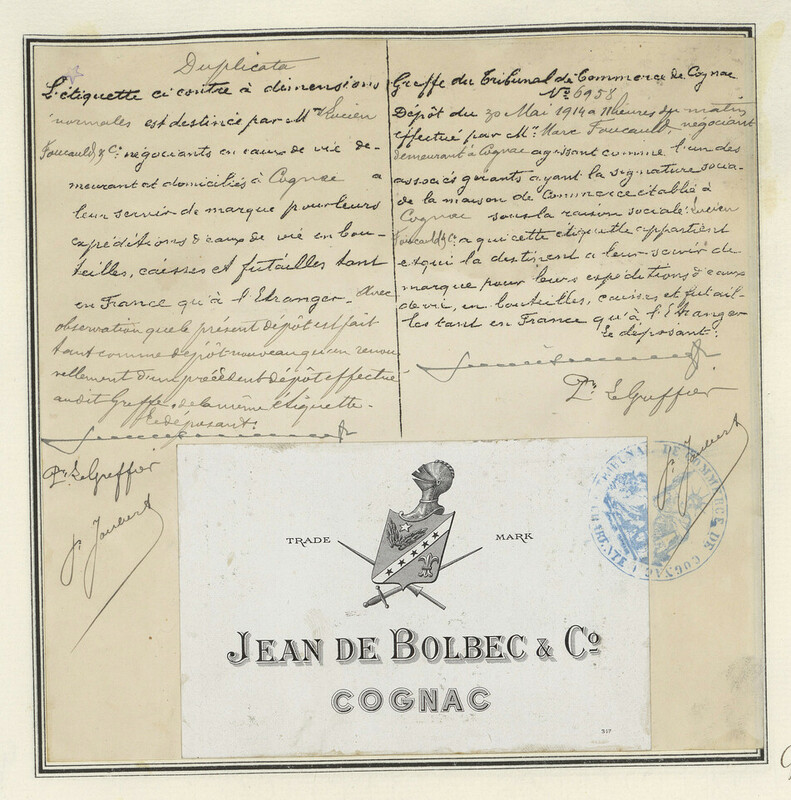 Duplicata
L'étiquette ci contre à dimensions
normales est destinée par Mr Lucien
Foucauld & Cie négociants en eaux de vie de-
meurant et domiciliés à Cognac a
leur servir de marque pour leurs
expéditions d'eaux de vie en bou-
teilles, caisses et futailles tant
en France qu'à l'Etranger. Avec
observation que le présent dépôt est fait
tant comme dépôt nouveau qu'en renou-
vellement d'un précédent dépôt effectué
audit Greffe, de la même étiquette.
Le déposant:
Pr Le Greffier
P. Joubert
Greffe du Tribunal de Commerce de Cognac
No 6958
Dépôt du 30 Mai 1914 a 11 heures du matin
effectué par Mr Marc Foucauld, négociant
demeurant à Cognac agissant comme l'un des
associés gérants ayant la signature socia-
de la maison de Commerce établie à
Cognac sous la raison sociale: Lucien
Foucauld & Cie a qui cette étiquette appartient
et qui la destinent a leur servir de
marque pour leurs expéditions d'eaux
de vie, en bouteilles, caisses et futail-
les tant en France qu'à l'Etranger
Le déposant:
Pr Le Greffier
P. Joubert
TRIBUNAL DE COMMERCE DE COGNAC
TRADE MARK
JEAN DE BOLBEC & Co
COGNAC
517